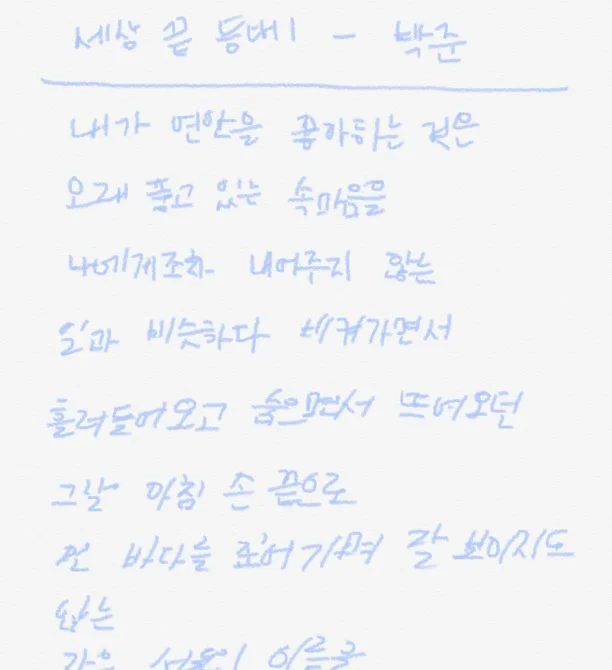 세상 끝 등대 1 - 박준
내가 연안을 좋아하는 것은
오래 품고 있는 속마음을
나에게조차 내어주지 않는
일과 비슷하다 비켜가면서
흘러들어오고 숨으면서 뜨여오던
그날 아침 손 끝으로
먼 바다를 짚어가며 잘 보이지도
않는
작은 섬들의 이름을